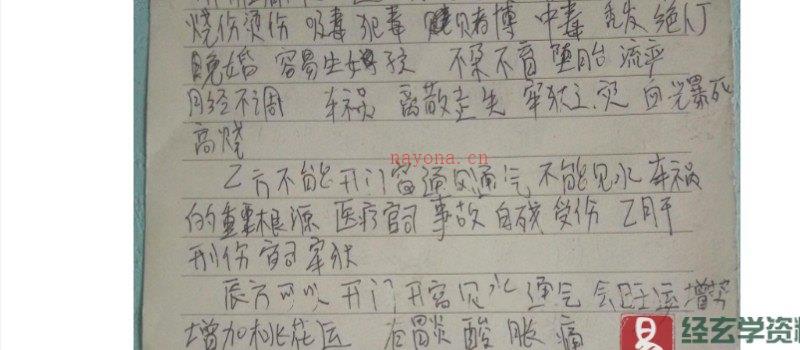 烧伤烫伤 吸毒 犯毒 赌博 中毒 绝人丁
晚婚 容易生女孩 不孕不育 堕胎 流产
月经不调 车祸 离散走失 牢狱之灾 血光暴死
高烧
nayona.cn
乙方不能开门窗通风通气 不能见水 车祸
的重要根源 医疗官司 事故 自残 受伤 乙肝
刑伤 官司 牢狱
辰方可以开门开窗见水通气 会旺运增势
增加桃花运 有胃炎 酸 胀 痛
易 经玄学资料